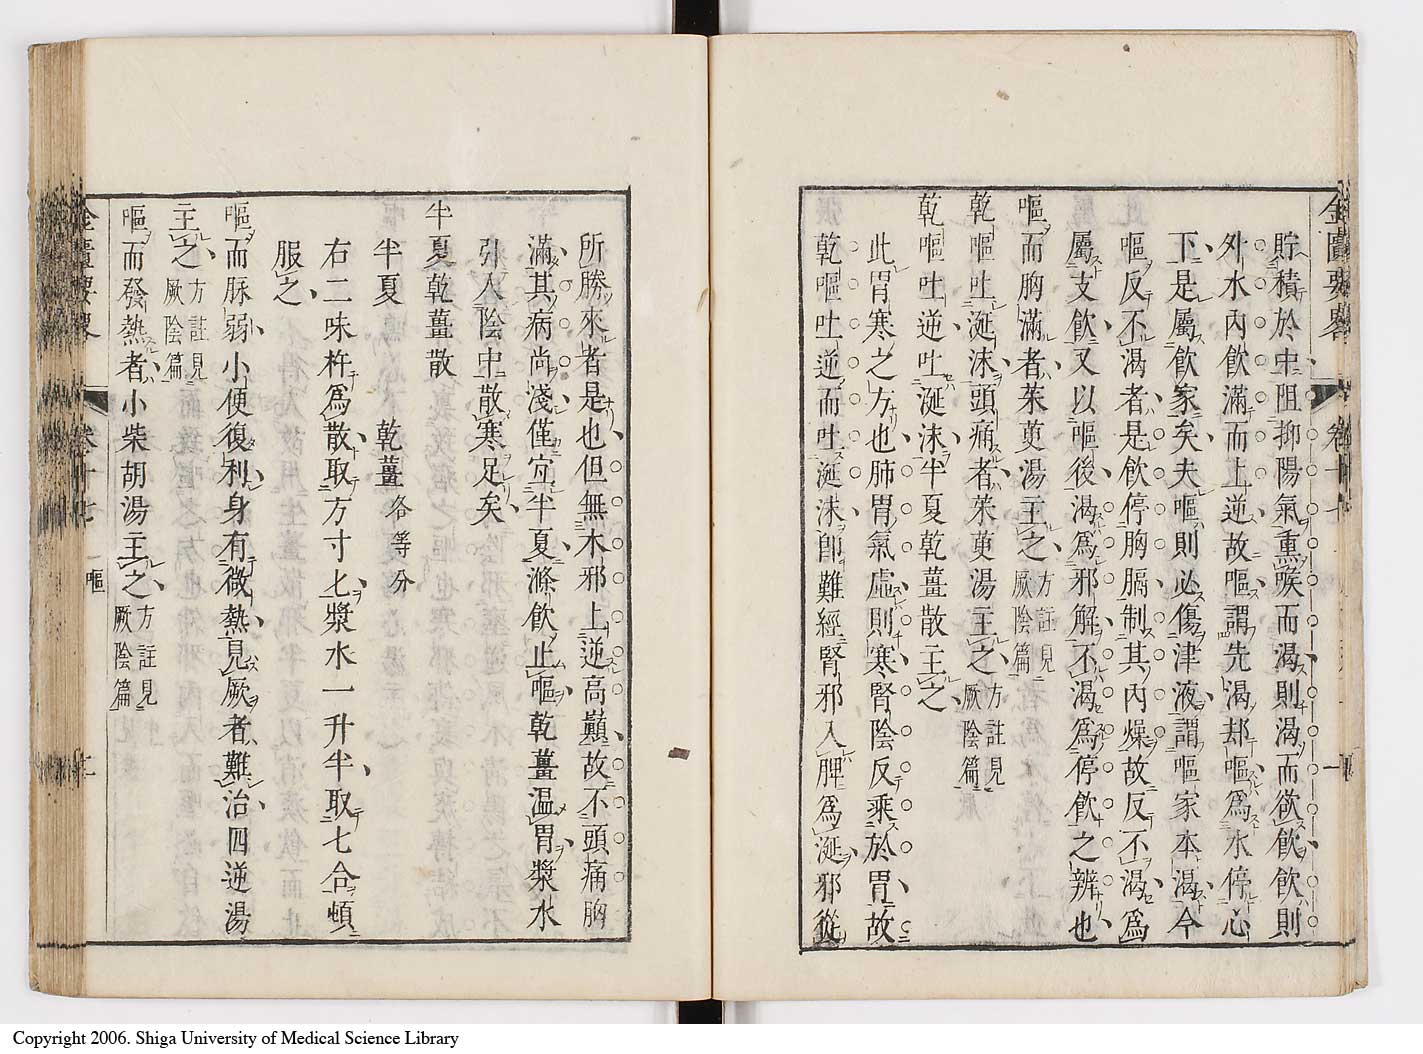 金匱要畧 卷十七
貯積於中阻抑陽氣熏喉而渴則渴而欲飲飲則
外水內飲滿而上逆故嘔謂先渴却嘔爲水停心
下是屬飲家矣夫嘔則必傷津液謂嘔家本渴今
嘔反不渴者是飲停胸膈制其內燥故反不渴爲
屬支飲又以嘔後渴爲邪解不渴爲停飲之辨也
嘔而胸滿者茱萸湯主之方註見厥陰篇
乾嘔吐涎沫頭痛者茱萸湯主之方註見厥陰篇
乾嘔吐逆吐涎沫半夏乾薑散主之
此胃寒之方也肺胃氣虛則寒腎陰反乘於胃故
乾嘔吐逆而吐涎沫卽難經腎邪入脾爲涎邪從
所勝來者是也但無木邪上逆高巔故不頭痛胸
滿其病尚淺僅宜半夏滌飲止嘔乾薑温胃漿水
引入陰中散寒足矣
半夏乾薑散
半夏 乾薑各等分
右二味杵爲散取方寸匕漿水一升半取七合頓
服之
嘔而脉弱小便復利身有微熱見厥者難治四逆湯
主之方註見厥陰篇
嘔而發熱者小柴胡湯主之方註見厥陰篇
金匱要畧 卷十七 嘔
Copyright 2006. Shiga University of Medical Science Library